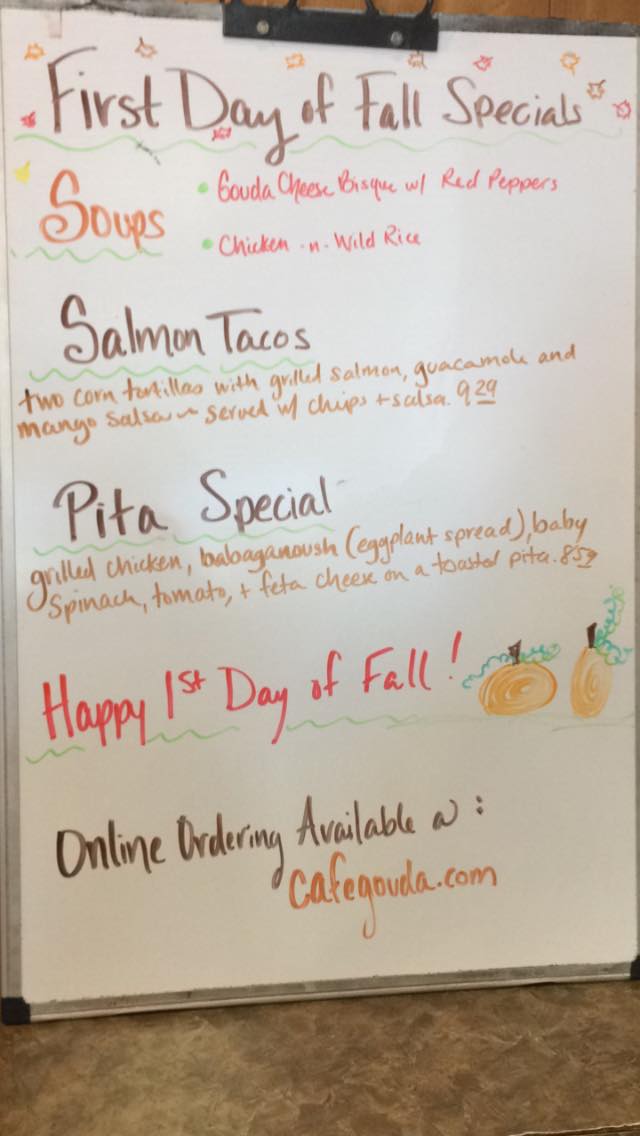 First Day of Fall Specials
Soups
• Gouda Cheese Bisque w/ Red Peppers
• Chicken -n- Wild Rice
Salmon Tacos
two corn tortillas with grilled salmon, guacamole and
mango salsa ~ served w/ chips + salsa. 9.29
Pita Special
grilled chicken, babaganoush (eggplant spread), baby
spinach, tomato, + feta cheese on a toasted pita. 8.59
Happy 1st Day of Fall!
Online Ordering Available @:
cafegouda.com